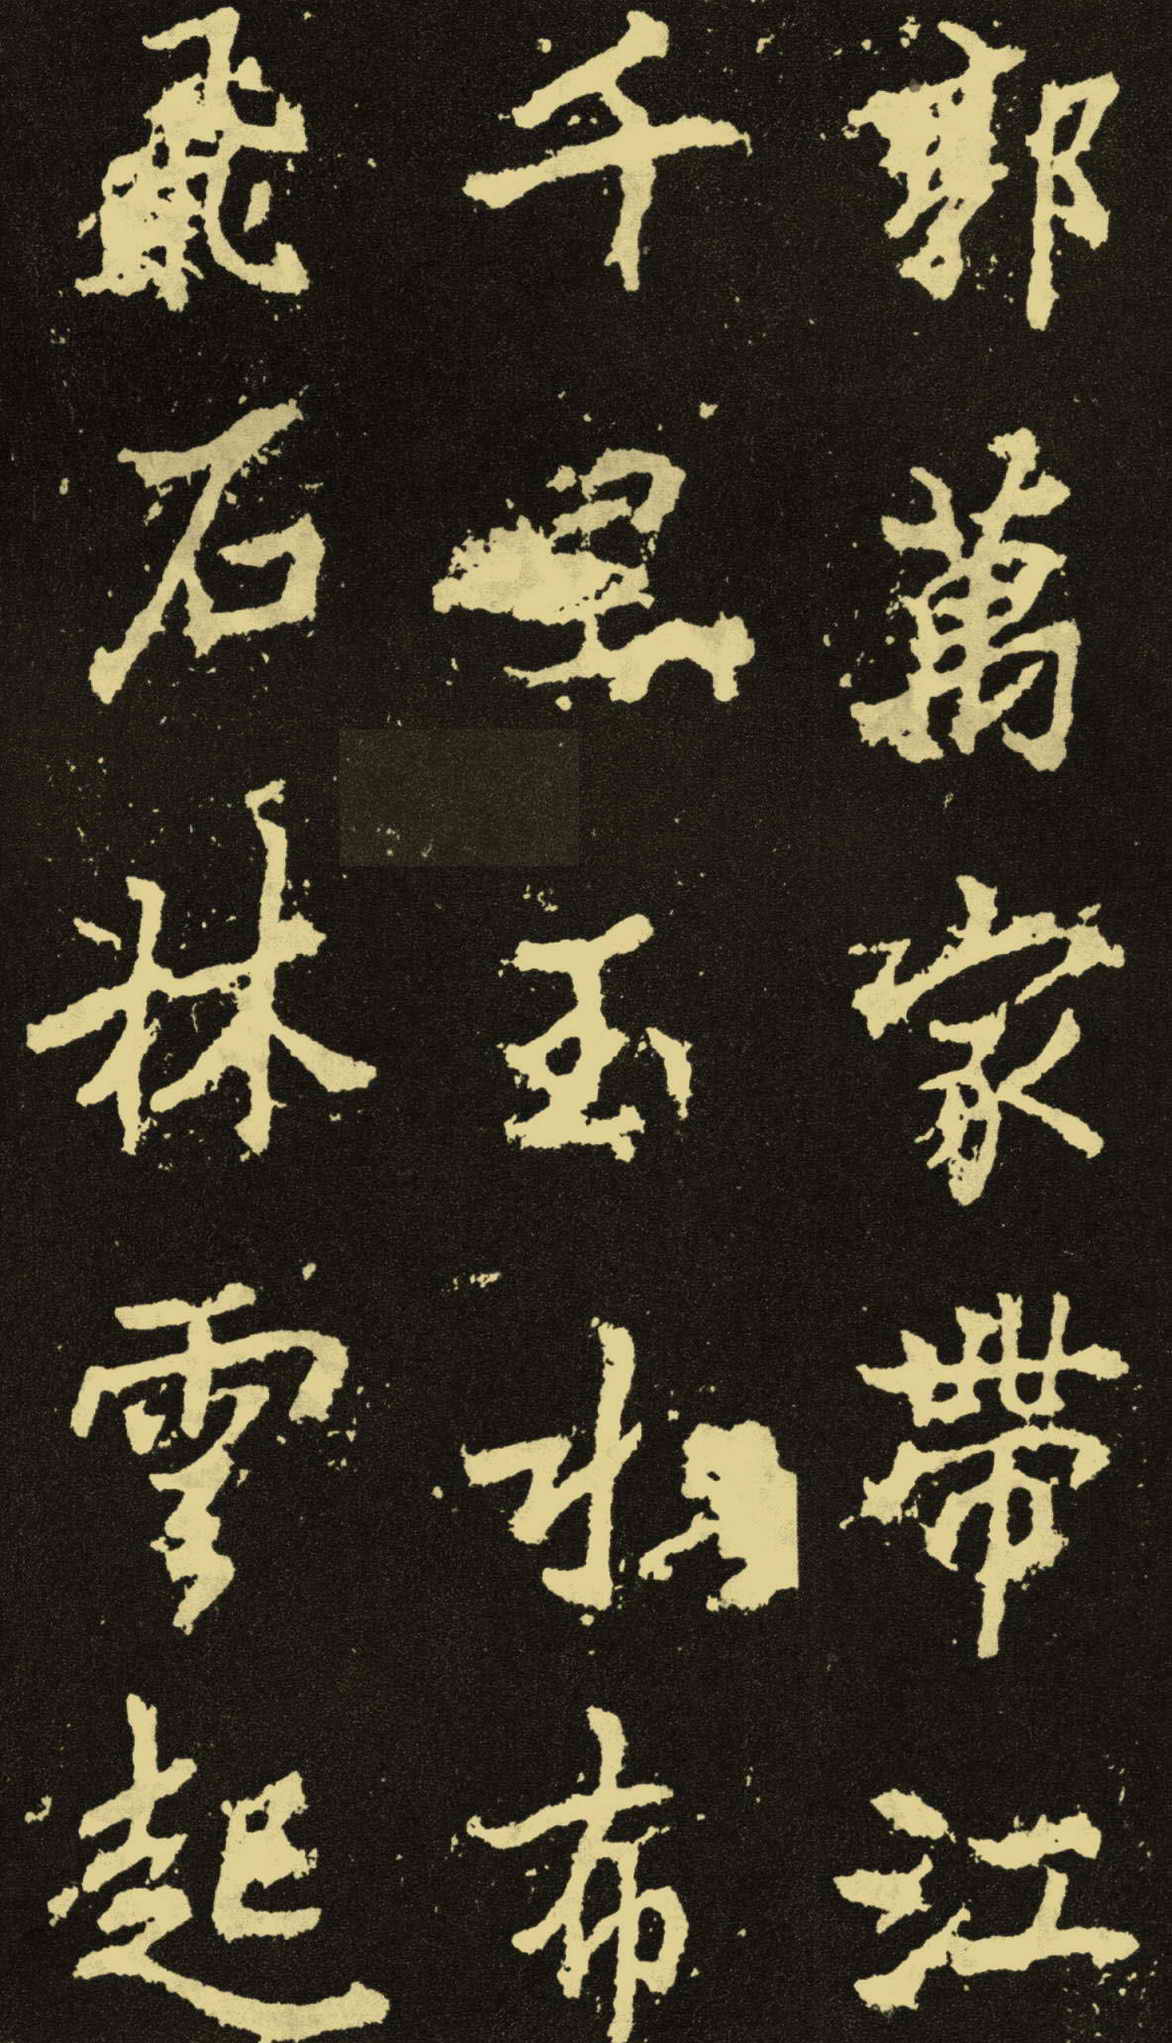 郭萬家帶江
千玉水布
飛石林雲起